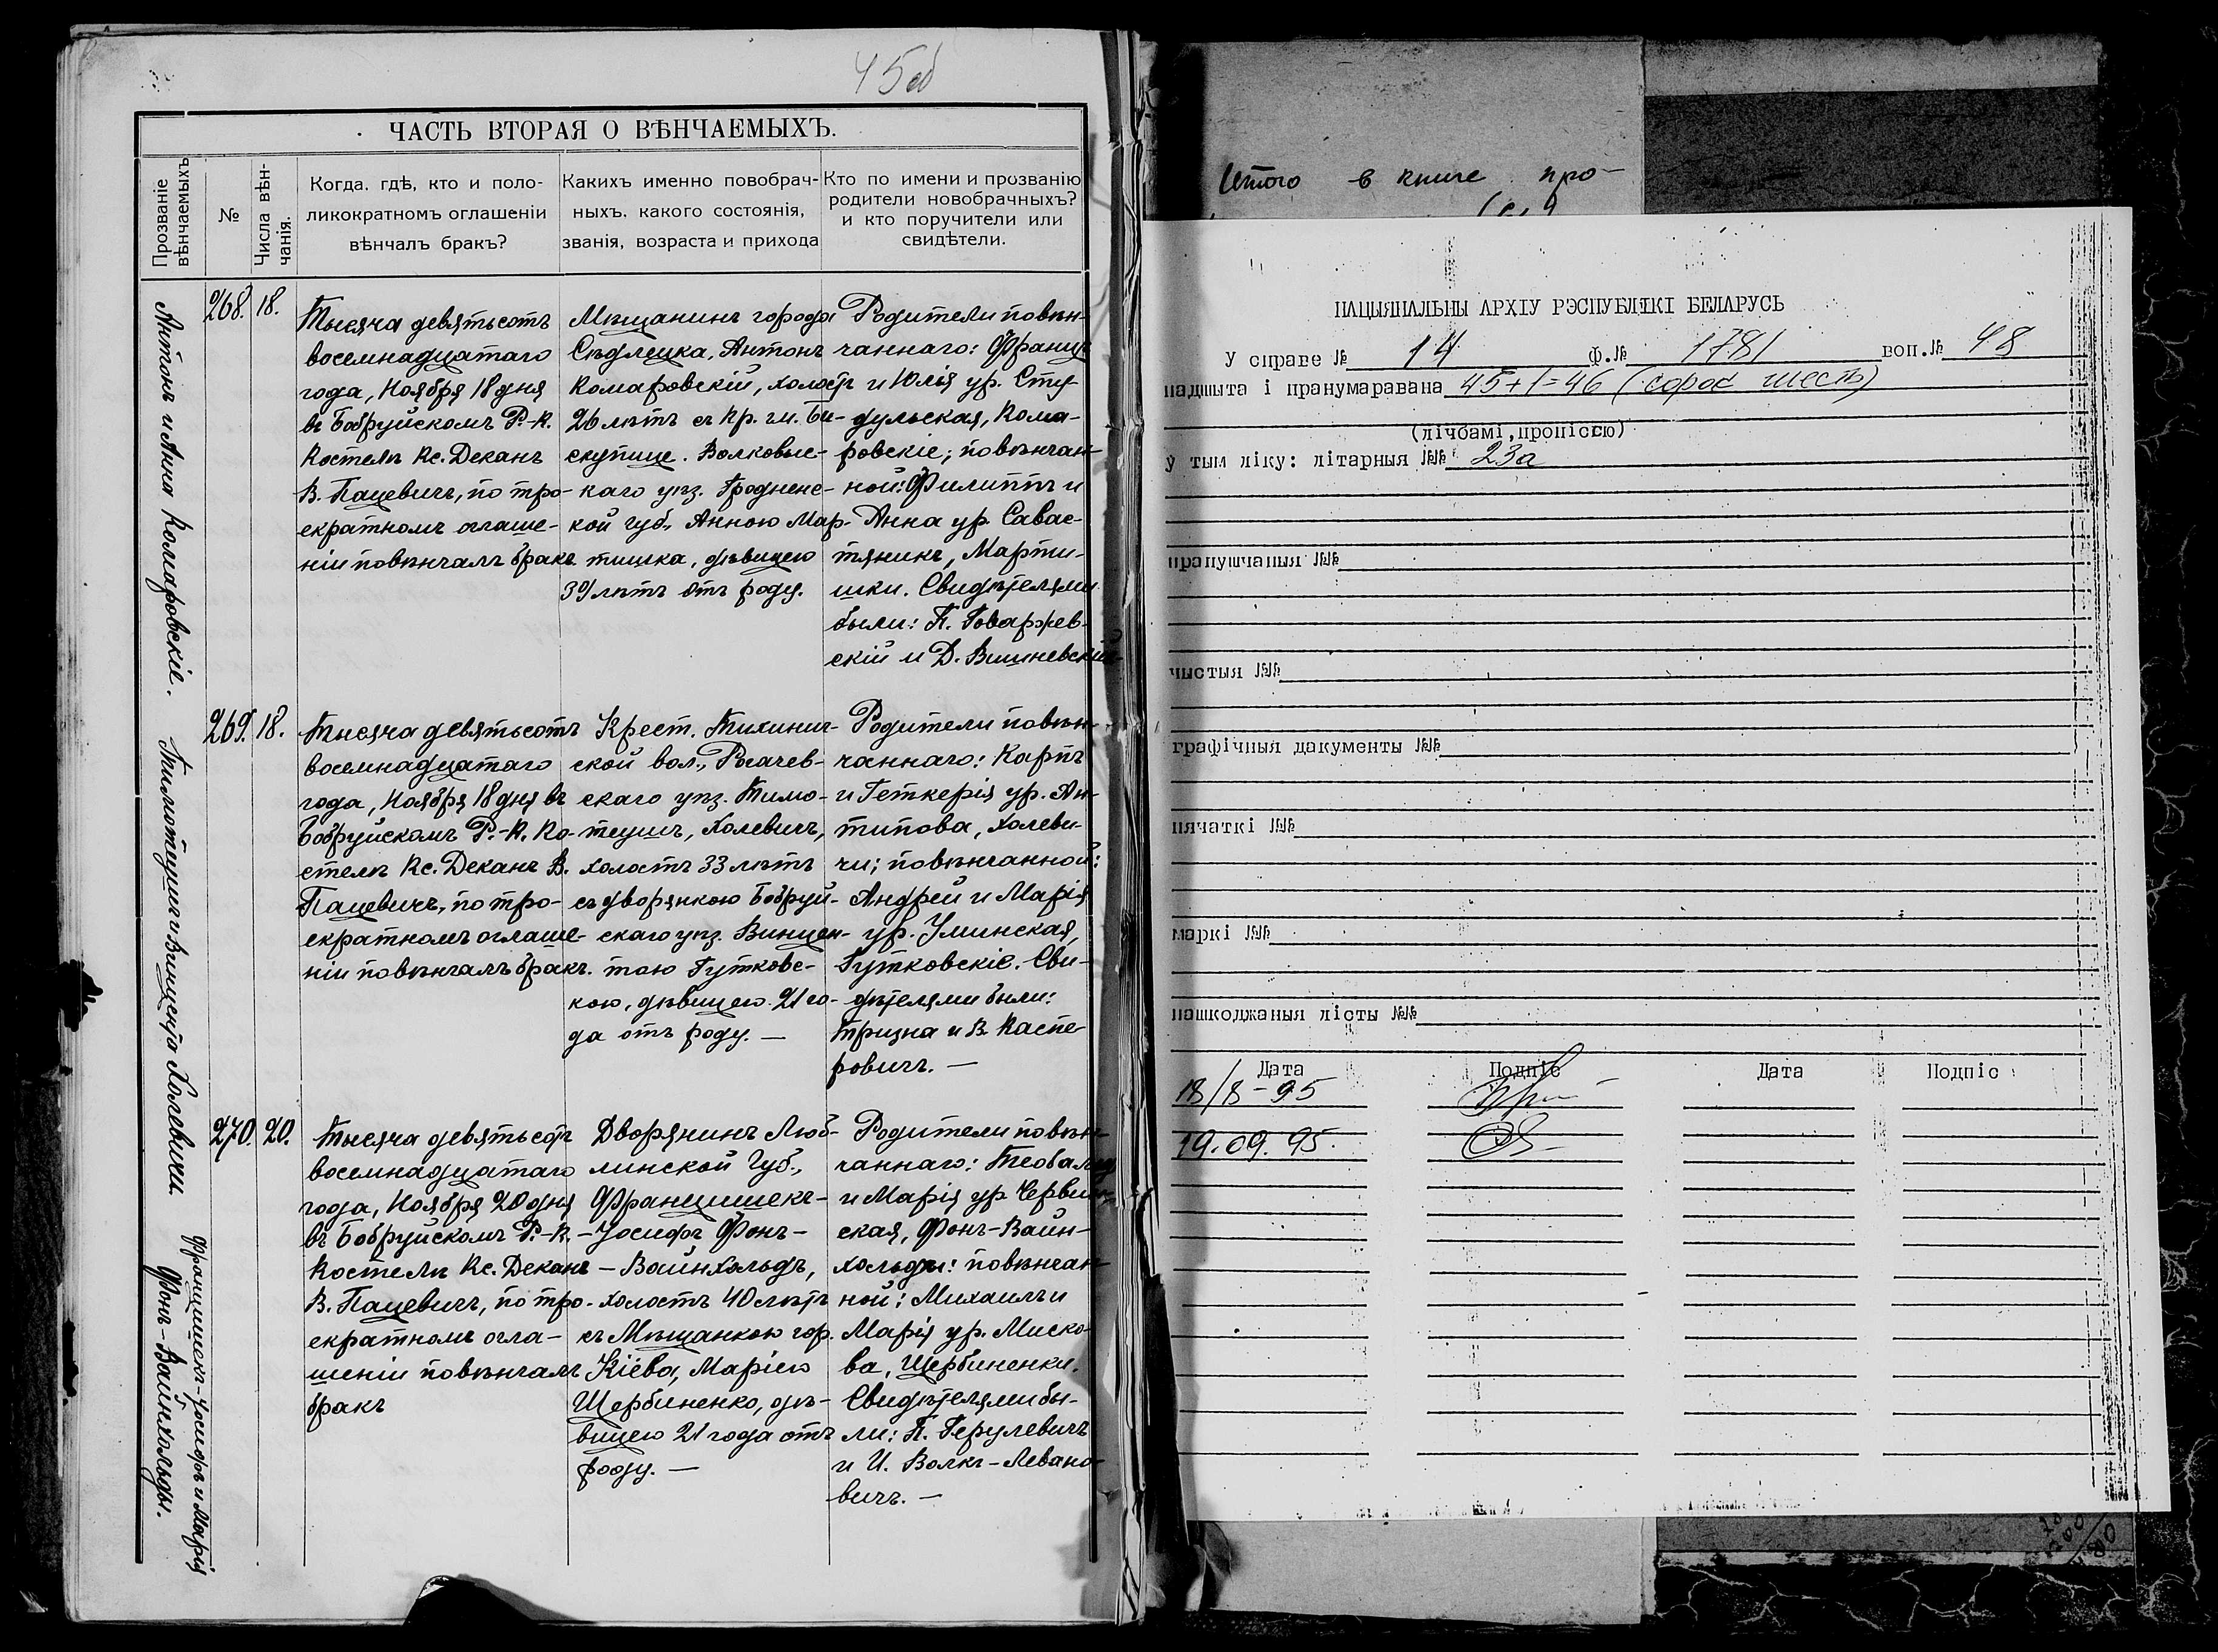 45об
ЧАСТЬ ВТОРАЯ О ВѢНЧАЕМЫХЪ.
Прозваніе
вѣнчаемыхъ
№
Числа вѣн-
чанія.
Когда, гдѣ, кто и поло-
ликократномъ оглашеніи
вѣнчалъ бракъ?
Какихъ именно повобрач-
ныхъ, какого состоянія,
званія, возраста и прихода
Кто по имени и прозванію
родители новобрачныхъ?
и кто поручители или
свидѣтели.
Антонъ и Анна Комаровскіе.
268. 18.
Тысяча девятьсотъ
восемнадцатаго
года, Ноября 18 дня
въ Бобруйскомъ Р.-К.
Костелѣ Кс. Деканъ
В. Пацевичъ, по тро-
екратномъ оглаше-
ніи повѣнчалъ бракъ
Мѣщанинъ города
Сѣдлецка, Антонъ
Комаровскій, холостъ
26 лѣтъ съ кр. гм. Би-
скупице. Волковыс-
каго уѣз. Гродненс-
кой губ., Анною Мар-
тишка, дѣвицею
39 лѣтъ отъ роду.
Родители повѣн-
чаннаго: Францъ
и Юлія ур. Сту-
дульская, Кома-
ровскіе; повѣнчан-
ной: Филиппъ и
Анна ур. Савас-
тяникъ, Марти-
шки. Свидѣтелями
были: П. Говаржев-
скій и Д. Вишневскій
Тимотеушъ и Винцента Холевичи.
269. 18.
Тысяча девятьсотъ
восемнадцатаго
года, Ноября 18 дня въ
Бобруйскомъ Р.-К. Ко-
стелѣ Кс. Деканъ В.
Пацевичъ, по тро-
екратномъ оглаше-
ніи повѣнчалъ бракъ.
Крест. Тихинич-
ской вол., Рогачев-
скаго уѣз. Тимо-
теушъ, Холевичъ,
холостъ 33 лѣтъ
съ дворянкою Бобруй-
скаго уѣз. Винцен-
тою Гутковс-
кою, дѣвицею 21 го-
да отъ роду. —
Родители повѣн-
чаннаго: Карпъ
и Геткерія ур. Ан-
типова, Холеви-
чи; повѣнчанной:
Андрей и Марія
ур. Уминская,
Гутковскіе. Сви-
дѣтелями были:
Тризна и В. Каспе-
ровичъ. —
Францишекъ-Іосифъ и Марія
Фонъ-Вайнхольды.
270. 20.
Тысяча девятьсотъ
восемнадцатаго
года, Ноября 20 дня
въ Бобруйскомъ Р.-К.
Костелѣ Кс. Деканъ
В. Пацевичъ, по тро-
екратномъ огла-
шеніи повѣнчалъ
бракъ
Дворянинъ Люб-
линской Губ.,
Францишекъ-
-Іосифъ Фонъ-
-Вайнхольдъ,
холостъ 40 лѣтъ
съ Мѣщанкою гор.
Кіева, Маріею
Щербиненко, дѣ-
вицею 21 года отъ
роду. —
Родители повѣн-
чаннаго: Теобальдъ
и Марія ур Червин-
ская, Фонъ-Вайн-
хольды: повѣнчан-
ной: Михаилъ и
Марія ур. Миско-
ва, Щербиненки.
Свидѣтелями бы-
ли: П. Герулевичъ
и И. Волкъ-Левано-
вичъ. —
Итого в книге про-
НАЦЫЯНАЛЬНЫ АРХІУ РЭСПУБЛІКІ БЕЛАРУСЬ
У справе № 14 ф.№ 1781 воп.№ 48
падшыта і пранумаравана 45+1=46 (сорок шесть)
(лічбамі,пропіссю)
ў тым ліку: літарныя №№ 23а
прапушчаныя №№
чыстыя №№
графічныя дакументы №№
пячаткі №№
маркі №№
пашкоджаныя лісты №№
Дата Подпіс Дата Подпіс
18/8-95
19.09.95.